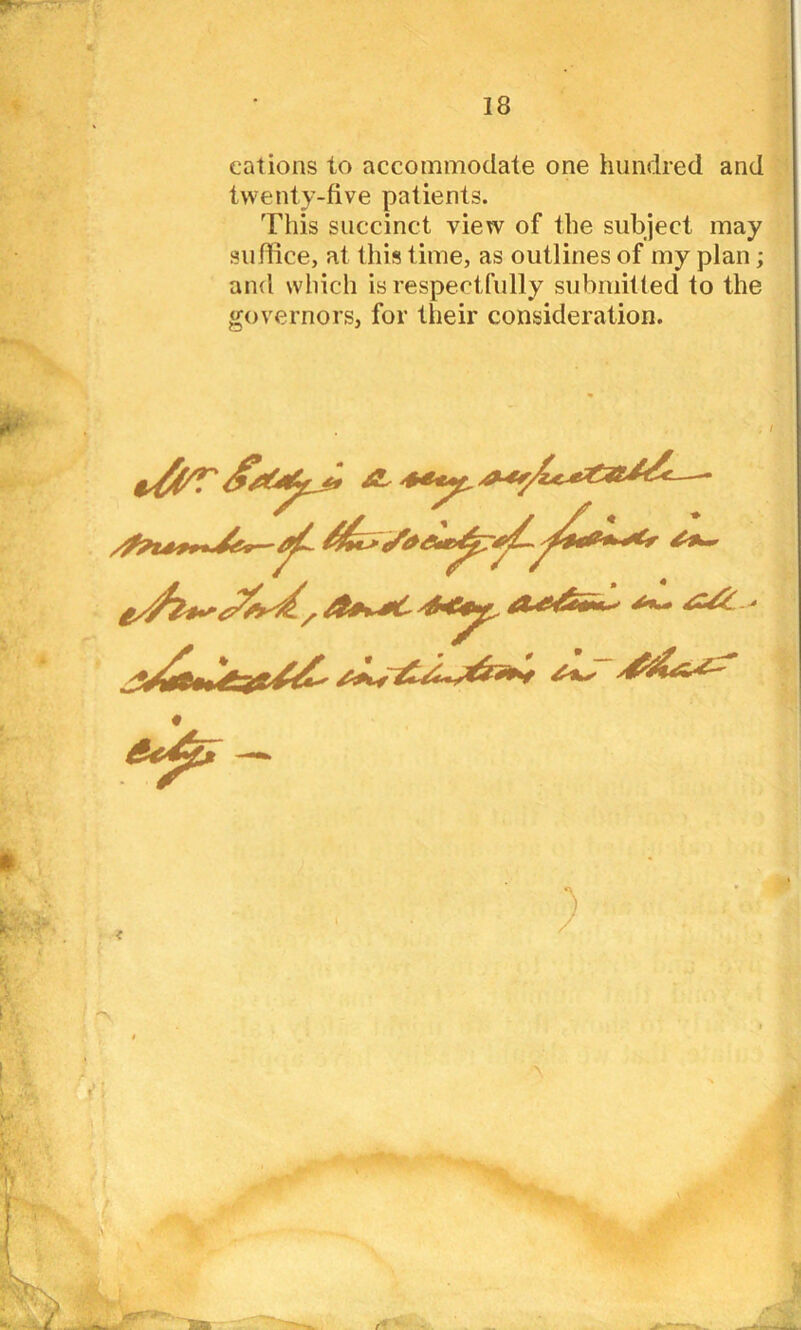 18
cations to accommodate one hundred and
twenty-five patients.
This succinct view of the subject may
suffice, at this time, as outlines of my plan;
and which is respectfully submitted to the
governors, for their consideration.
Mr Eddy is a very respectable
member of the society of friends in
New-York, and very active in all
charitable institutions in that
City —